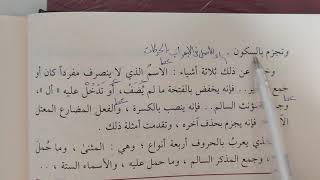 وتجزم بالسكون .
وخرج عن ذلك ثلاثة أشياء : الاسم الذي لا ينصرف مفرداً كان أو
جمع تكسير .. فإنه يخفض بالفتحة ما لم يُضَف، أو تَدْخُلْ عليه « أل »،
.. فإنه ينصب بالكسرة ، والفعل المضارع المعتل
الآخر .. فإنه يجزم بحذف آخره ، وتقدمت أمثلة ذلك .
والذي يعربُ بالحروف أربعة أنواع ؛ وهي : المثنى ، وما حُملَ
، وجمع المذكر السالم ، وما حمل عليه ، والأسماء الستة